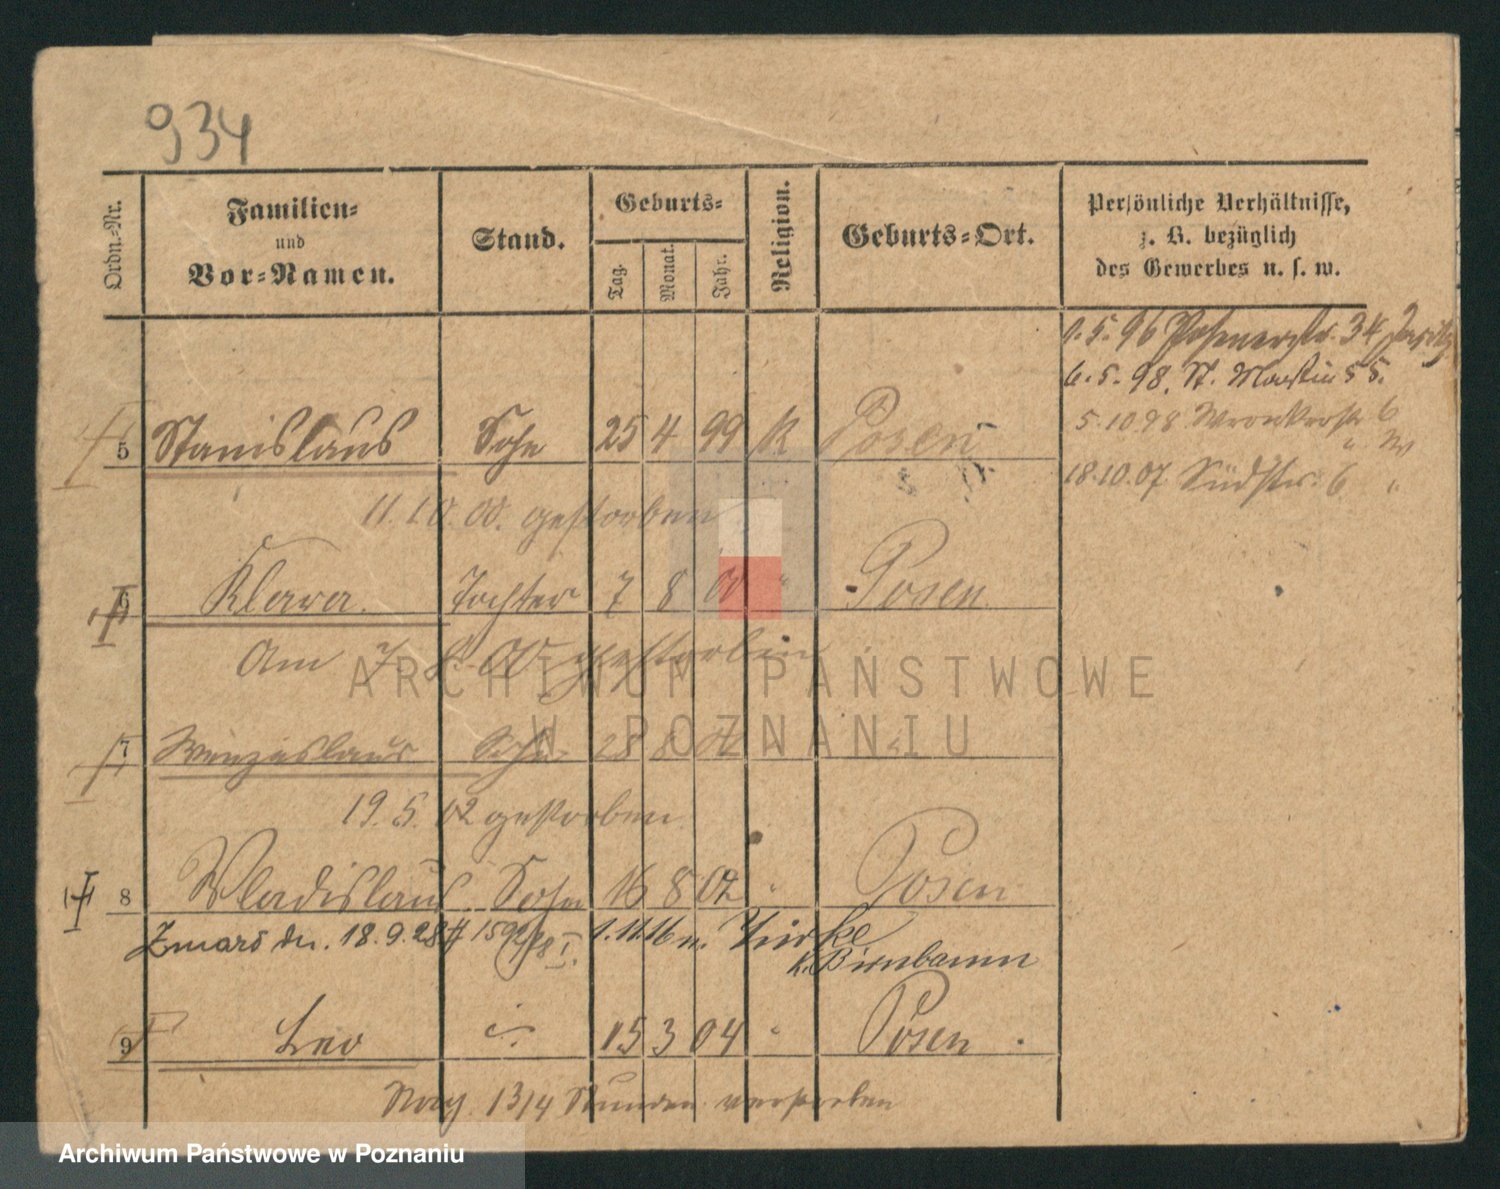 934
Ordn.-Nr. Familien- und Vor-Namen. Stand. Geburts- Tag. Monat. Jahr. Religion. Geburts-Ort. Persönliche Verhältnisse, z. B. bezüglich des Gewerbes u. s. w.
1.5.96 Posenerstr. 34
6.5.98. St. Martin 55.
5.10.98 Wronkerstr. 6
18.10.07 Südstr. 6 "
5 Stanislaus Sohn 25 4 99 K Posen
11.10.00. gestorben
6 Klara. Tochter 7 8 00 " Posen
Am 7 8. 00 gestorben
7 Wenzeslaus Sohn 28 8 " "
19.5.02 gestorben
8 Wladislaus Sohn 16 8 02 " Posen
Zmarł dn. 18.9.28 1.11.16 n.
k. Birnbaum
9 Leo " 15 3 04 " Posen.
Nach 13/4 Stunden verstorben
ARCHIWUM PAŃSTWOWE
W POZNANIU
Archiwum Państwowe w Poznaniu